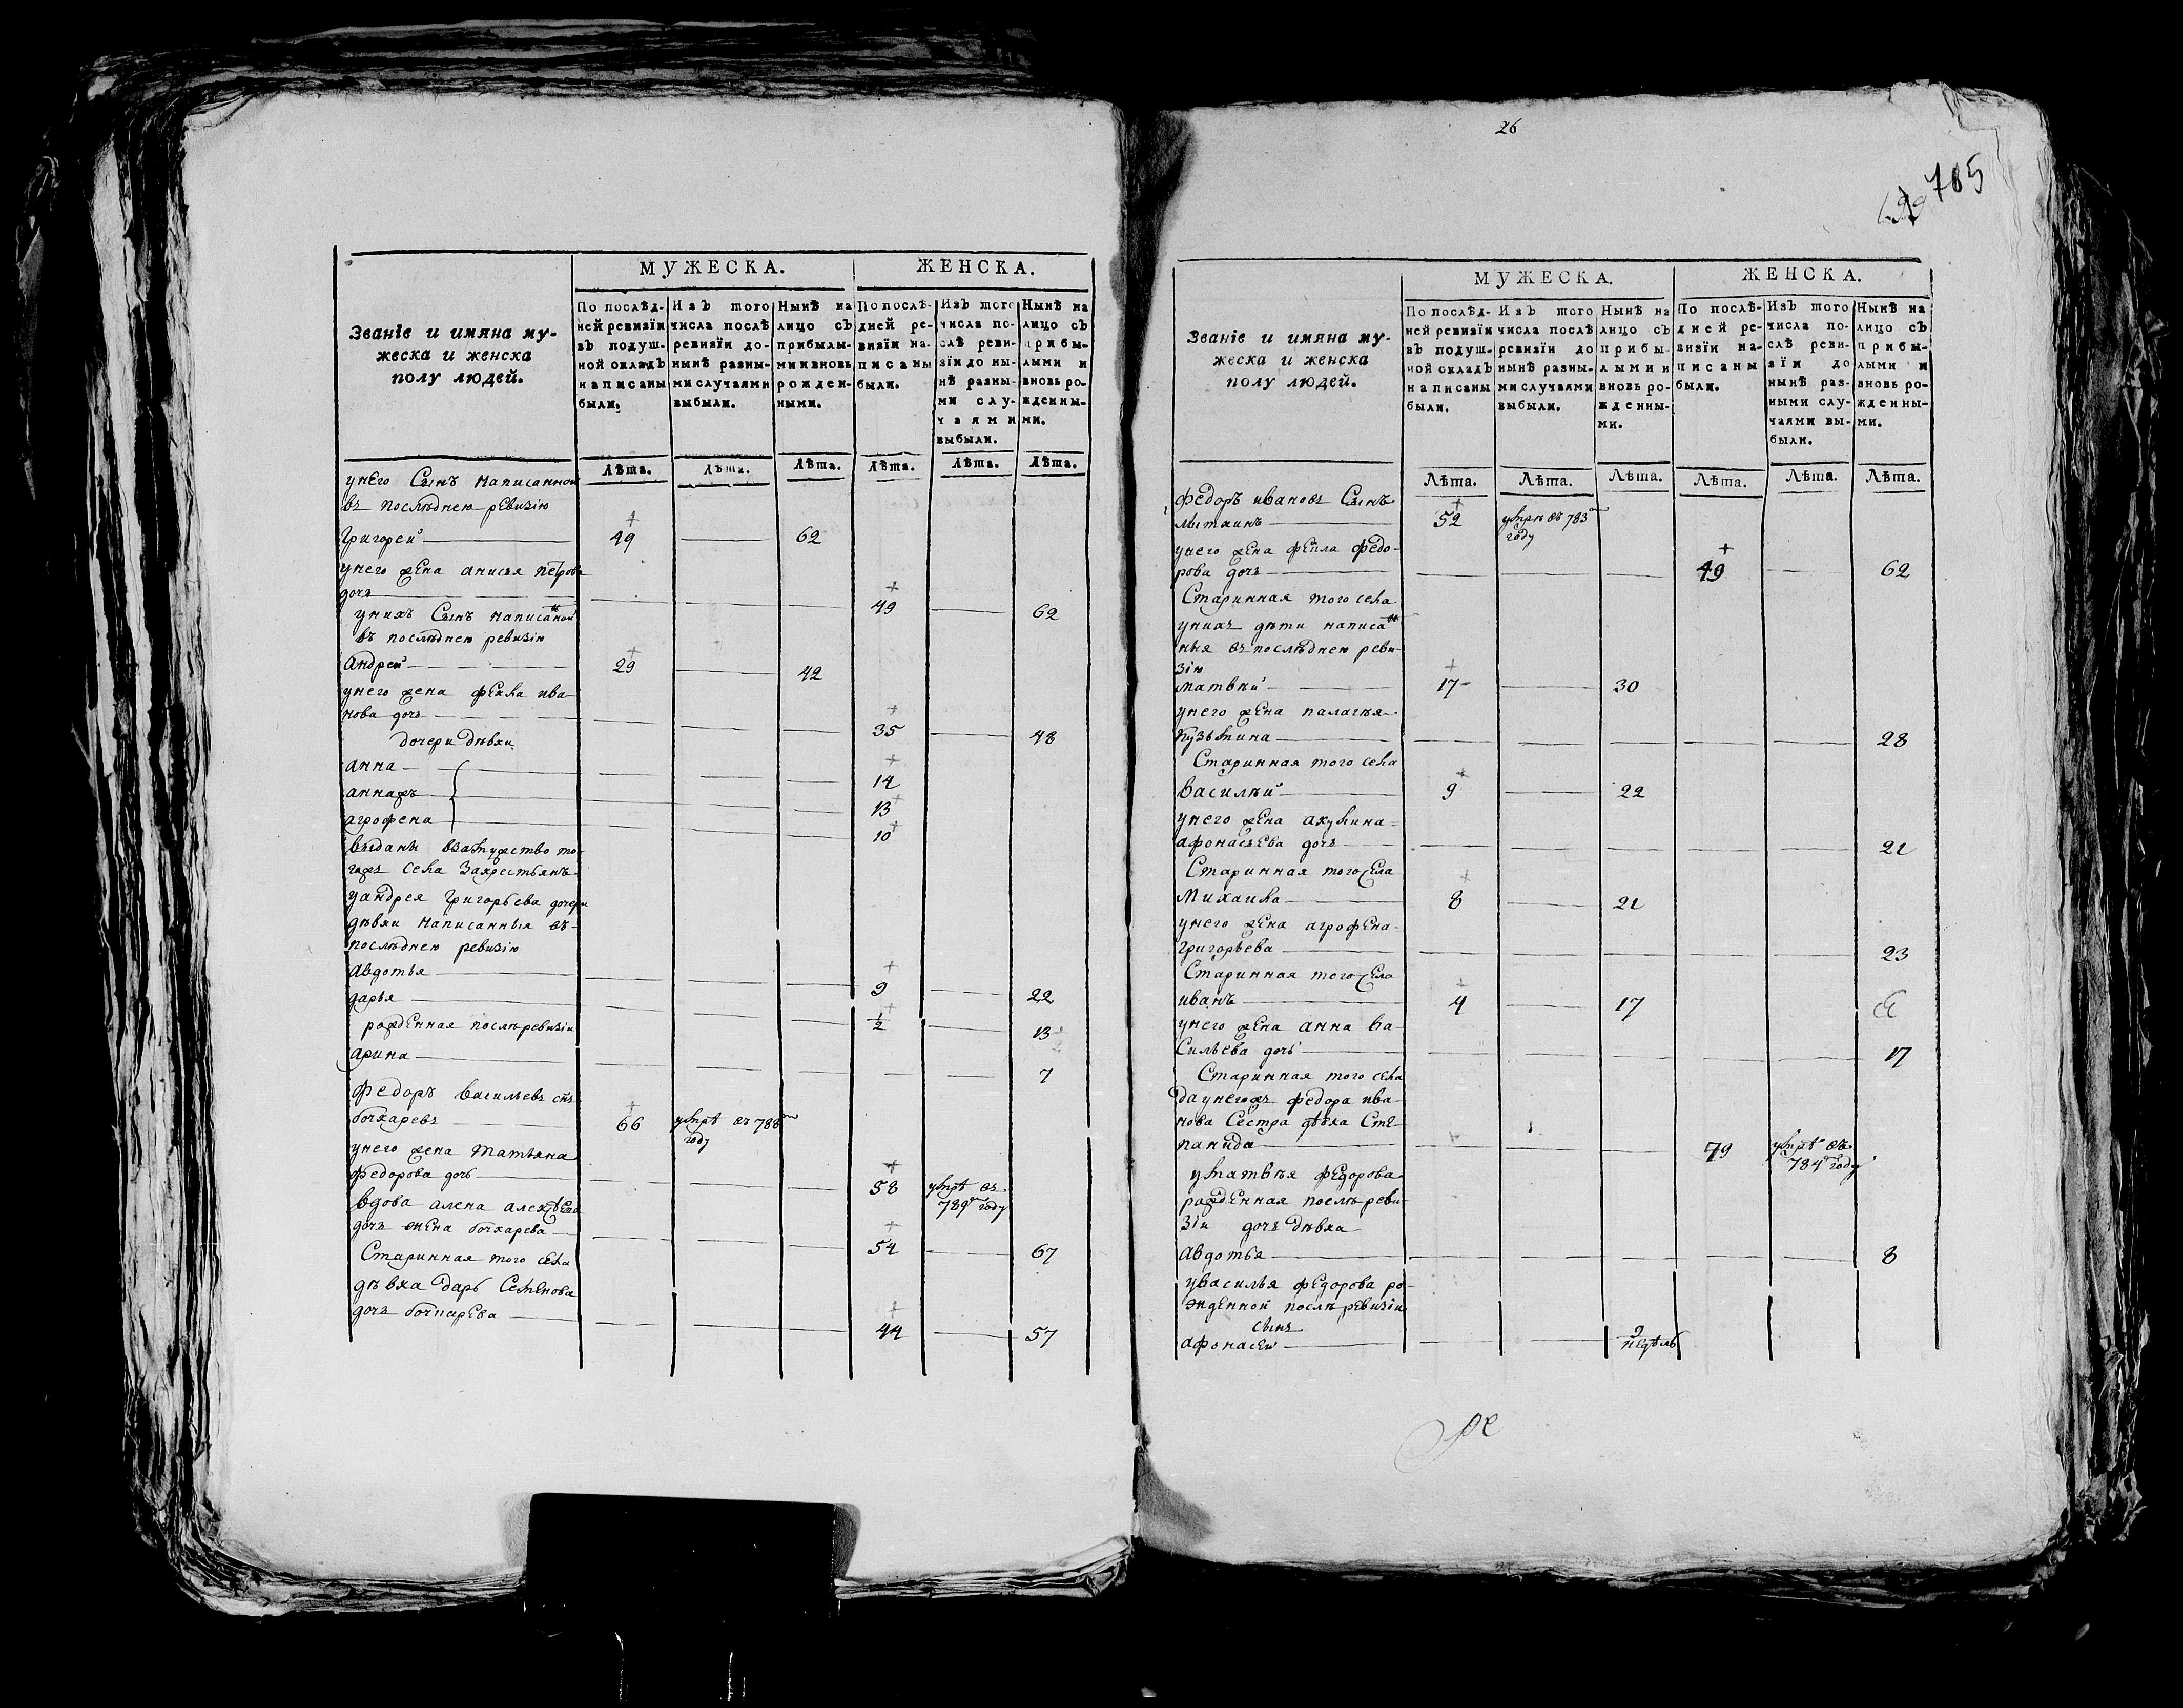 МУЖЕСКА. ЖЕНСКА.
Званіе и имяна му-
жеска и женска
полу людей.
По послѣд-
ней ревизіи
въ подуш-
ной окладъ
написаны
были.
Изъ того
числа послѣ
ревизіи до-
нынѣ разны-
ми случаями
выбыли.
Нынѣ на
лицо съ
прибылы-
ми и вновь
рожден-
ными.
По послѣ-
дней ре-
визіи на-
писаны
были.
Изъ того
числа по-
слѣ реви-
зіи до ны-
нѣ разны-
ми слу-
чаями
выбыли.
Нынѣ на
лицо съ
прибы-
лыми и
вновь ро-
жденны-
ми.
Лѣта. Лѣта. Лѣта. Лѣта. Лѣта. Лѣта.
унего Сынъ написанной
въ послѣднею ревизію
Григореи 49 62
унего жена анисья петрова
дочь 49 62
унихъ Сынъ написанной
въ послѣднею ревизію
Андреи 29 42
унего жена фекла ива
нова дочь 35 48
дочери дѣвки
анна 14
аннажъ 13
агрофена 10
выданы взамужство то-
гожъ села закрестьянъ
уандрея Григорьева дочери
дѣвки написанныя въ-
послѣднею ревизію
авдотья 9 22
дарья ½ 13
рожденная послѣ ревизіи
арина 7
Федоръ васильевъ снъ
бочкаревъ 66 умре въ 788м
году
унего жена татьяна
Федорова дочь 58 умре въ
789м году
вдова алена алексѣева
дочь жена бочкарева 54 67
Старинная того села
дѣвка дарь Семенова
дочь бочкарева 44 57
26
699 705
МУЖЕСКА. ЖЕНСКА.
Званіе и имяна му-
жеска и женска
полу людей.
По послѣд-
ней ревизіи
въ подуш-
ной окладъ
написаны
были.
Изъ того
числа послѣ
ревизіи до
нынѣ разны-
ми случаями
выбыли.
Нынѣ на
лицо съ
прибы-
лыми и
вновь ро-
жденны-
ми.
По послѣ-
дней ре-
визіи на-
писаны
были.
Изъ того
числа по-
слѣ реви-
зіи до
нынѣ раз-
ными слу-
чаями вы-
были.
Нынѣ на
лицо съ
прибы-
лыми и
вновь ро-
жденны-
ми.
Лѣта. Лѣта. Лѣта. Лѣта. Лѣта. Лѣта.
Федоръ ивановъ Сынъ
52 умре въ 783м
году
унего жена федо-
рова дочь 49 62
Старинная того села
унихъ дѣти написан
ныя въ послѣднею реви-
зію
матвѣи 17 30
унего жена палагѣя
Кузьмина 28
Старинная того села
василѣи 9 22
унего жена акулина
афонасьева дочь 21
Старинная того села
Михаила 8 21
унего жена агрофена
Григорьева 23
Старинная того села
иванъ 4 17
унего жена анна ва-
сильева дочь 17
Старинная того села
да унегожъ федора ива-
нова Сестра дѣвка Сте-
панида 79 умре въ
784м году
уматвѣя федорова
рожденная послѣ реви-
зіи дочь дѣвка
авдотья 8
увасилья федорова ро-
жденной послѣ ревизіи
сынъ
афонасеи 9
недѣль